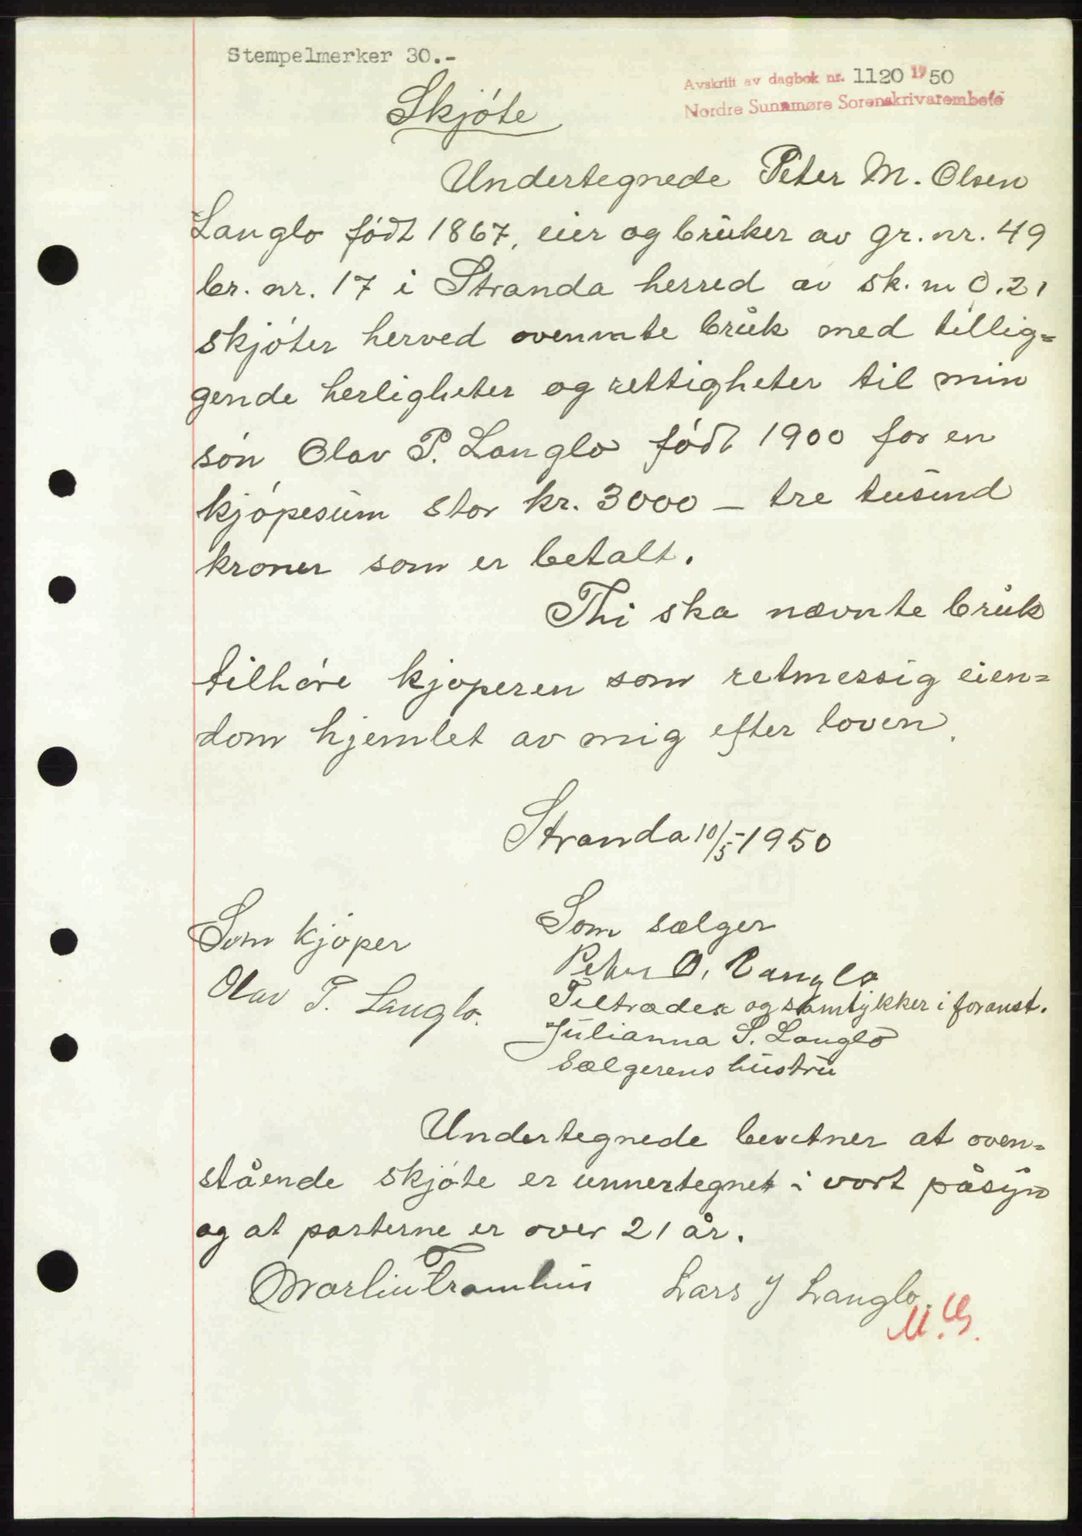 Stempelmerker 30.-
Avskrift av dagbok nr. 1120 1950
Nordre Sunnmøre Sorenskrivarembete
Skjóte
Undertegnede Peter M. Olsen
Langlo født 1867, eier og bruker av gr. nr. 49
br. nr. 17 i Stranda herred av sk. m 0.21
skjóter herved ovennvnte bruk med tillig=
gende herligheter og rettigheter til min
són Olav P. Langlo født 1900 for en
kjópesum stor kr. 3000 – tre tusind
kroner som er betalt.
Thi ska nævnte bruk
tilhóre kjóperen som retmessig eien=
dom hjemlet av mig efter loven.
Stranda 10/5-1950
Som kjóper
Som sælger
Olav P. Langlo.
Peter O. Langlo
Tiltræder og samtykker i foranst.
Julianna S. Langlo
Sælgerens hustru
Undertegnede bevitner at oven=
stående skjóte er unnertegnet i vort påsyn
og at parterne er over 21 år.
Martin Tromhus Lars J Langlo.
M.G.